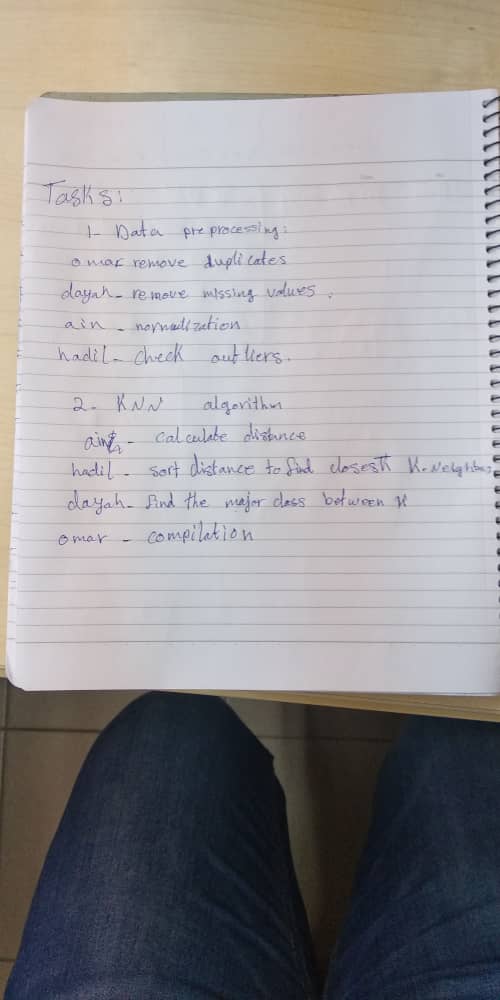 Tasks:
1- Data preprocessing:
omar remove duplicates
dayah- remove missing values.
ain - normalization
hadil- check outliers.
2- KNN algorithm
ain - calculate distance
hadil - sort distance to find closest K-Neighbors
dayah- find the major class between K
omar - compilation